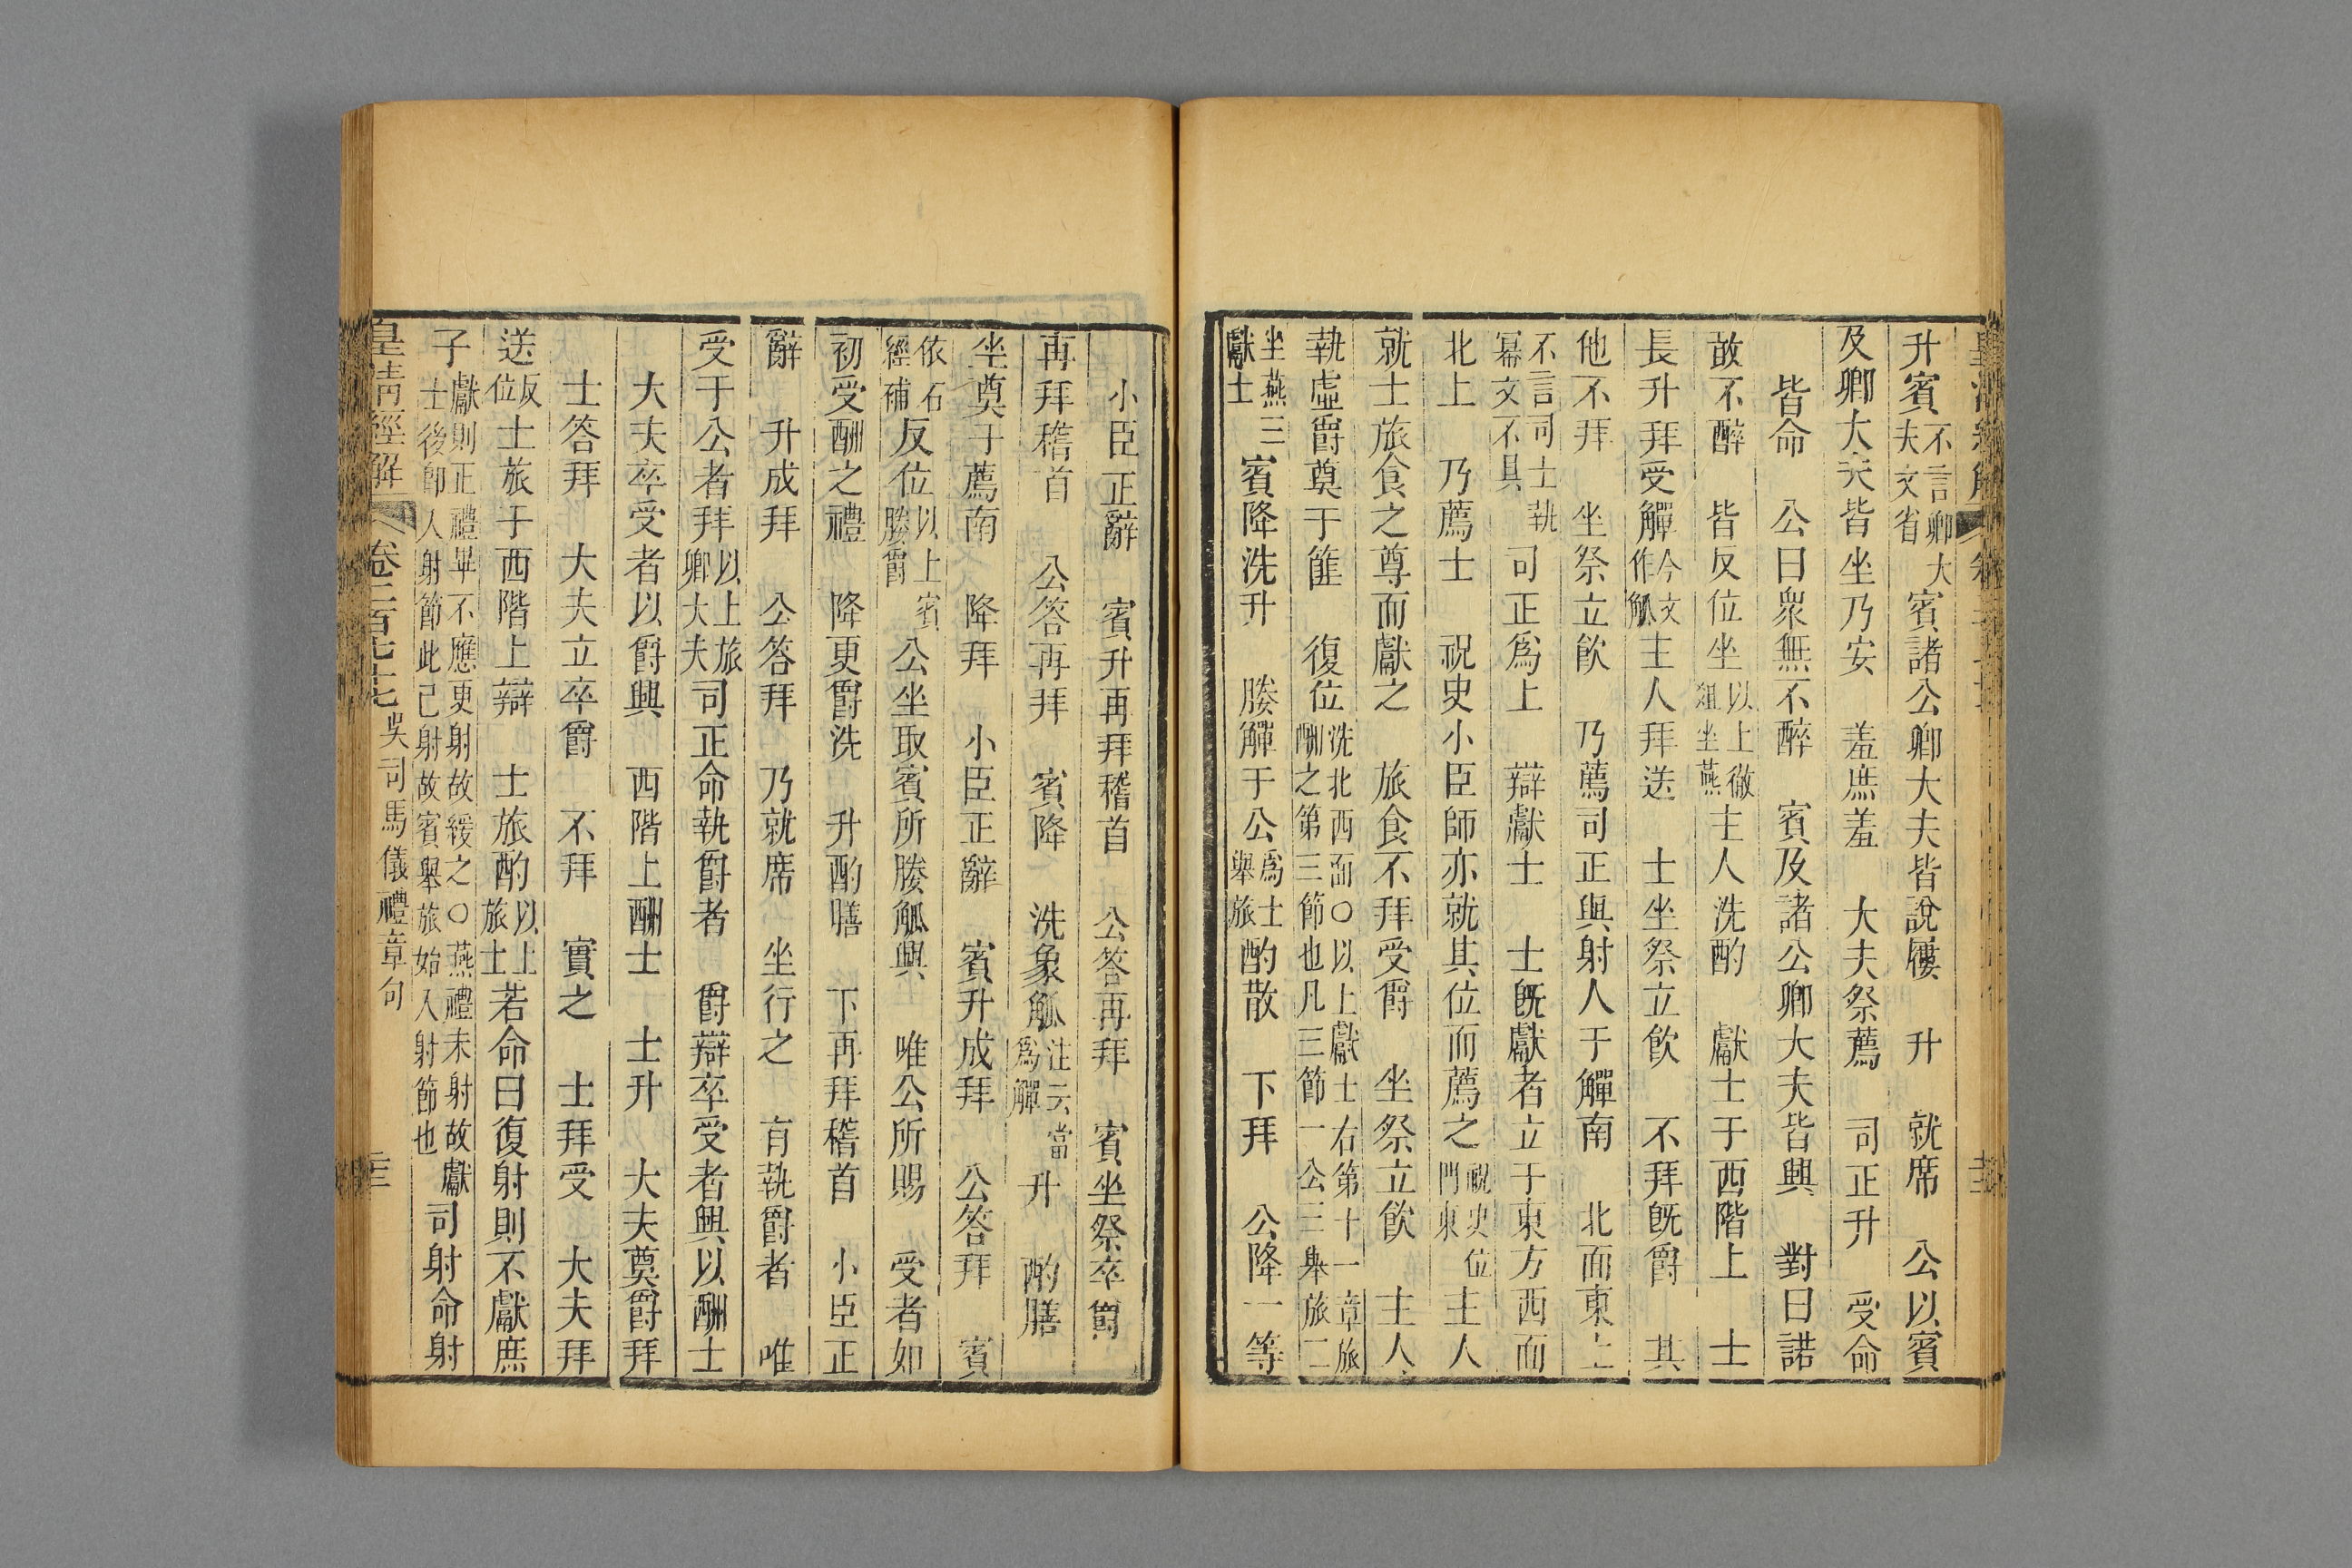 升賓不言卿大夫文省賓諸公卿大夫皆說屨　升　就席　公以賓
及卿大夫皆坐乃安　羞庶羞　大夫祭薦　司正升　受命
皆命　公曰衆無不醉　賓及諸公卿大夫皆興　對曰諾
敢不醉　皆反位坐以上徹俎坐燕主人洗酌　獻士于西階上　士
長升拜受觶今文作觚主人拜送　士坐祭立飲　不拜旣爵　其
他不拜　坐祭立飲　乃薦司正與射人于觶南　北面東上
不言司士執冪文不具司正爲上　辯獻士　士旣獻者立于東方西面
北上　乃薦士　祝史小臣師亦就其位而薦之祝史位門東主人
就士旅食之尊而獻之　旅食不拜受爵　坐祭立飲　主人
執虛爵奠于篚　復位洗北西面○以上獻士右第十一章旅酬之第三節也凡三節一公三舉旅二
坐燕三獻士　賓降洗升　媵觶于公爲士舉旅酌散　下拜　公降一等
小臣正辭　賓升再拜稽首　公答再拜　賓坐祭卒爵
再拜稽首　公答再拜　賓降　洗象觚注云當爲觶升　酌膳
坐奠于薦南　降拜　小臣正辭　賓升成拜　公答拜　賓
依石經補反位以上賓媵爵公坐取賓所媵觚興　唯公所賜　受者如
初受酬之禮　降更爵洗　升酌膳　下再拜稽首　小臣正
辭　升成拜　公答拜　乃就席　坐行之　有執爵者　唯
受于公者拜以上旅卿大夫司正命執爵者　爵辯卒受者興以酬士
大夫卒受者以爵興　西階上酬士　士升　大夫奠爵拜
士答拜　大夫立卒爵　不拜　實之　士拜受　大夫拜
送反位士旅于西階上辯　士旅酌以上旅士若命曰復射則不獻庶
子獻則正禮畢不應更射故緩之○燕禮未射故獻士後卽人射節此已射故賓舉旅始入射節也司射命射
皇清經解　卷二百七十七吳司馬儀禮章句